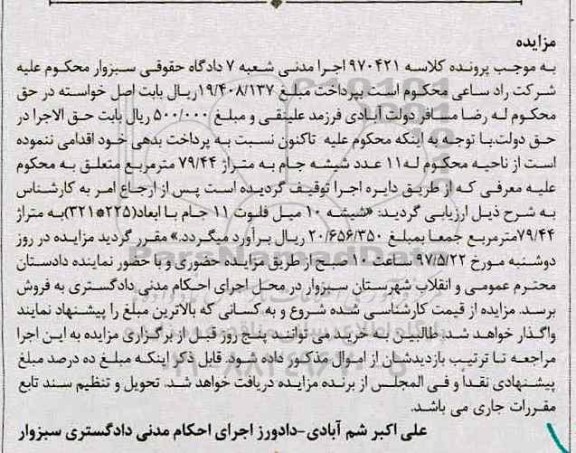 مزایده
به موجب پرونده کلاسه ۹۷۰۴۲۱ اجرا مدنی شعبه ۷ دادگاه حقوقی سبزوار محکوم علیه
شرکت راد ساعی محکوم است بپرداخت مبلغ ۱۹/۴۰۸/۱۳۷ریال بابت اصل خواسته در حق
محکوم له رضا مسافر دولت آبادی فرزمد علینقی و مبلغ ۵۰۰/۰۰۰ ریال بابت حق الاجرا در
حق دولت.با توجه به اینکه محکوم علیه تاکنون نسبت به پرداخت بدهی خود اقدامی ننموده
است از ناحیه محکوم له۱۱ عدد شیشه جام به متراژ ۷۹/۴۴ مترمربع متعلق به محکوم
علیه معرفی که از طریق دایره اجرا توقیف گردیده است پس از ارجاع امر به کارشناس
به شرح ذیل ارزیابی گردید: «شیشه ۱۰ میل فلوت ۱۱ جام با ابعاد(۲۲۵*۳۲۱)به متراژ
۷۹/۴۴مترمربع جمعا بمبلغ ۲۰/۶۵۶/۳۵۰ ریال برآورد میگردد.» مقرر گردید مزایده در روز
دوشنبه مورخ ۹۷/۵/۲۲ ساعت ۱۰ صبح از طریق مزایده حضوری و با حضور نماینده دادستان
محترم عمومی و انقلاب شهرستان سبزوار در محل اجرای احکام مدنی دادگستری به فروش
برسد. مزایده از قیمت کارشناسی شده شروع و به کسانی که بالاترین مبلغ را پیشنهاد نمایند
واگذار خواهد شد. طالبین به خرید می توانند پنج روز قبل از برگزاری مزایده به این اجرا
مراجعه تا ترتیب بازدیدشان از اموال مذکور داده شود. قابل ذکر اینکه مبلغ ده درصد مبلغ
پیشنهادی نقدا و فی المجلس از برنده مزایده دریافت خواهد شد. تحویل و تنظیم سند تابع
مقررات جاری می باشد.
علی اکبر شم آبادی-دادورز اجرای احکام مدنی دادگستری سبزوار